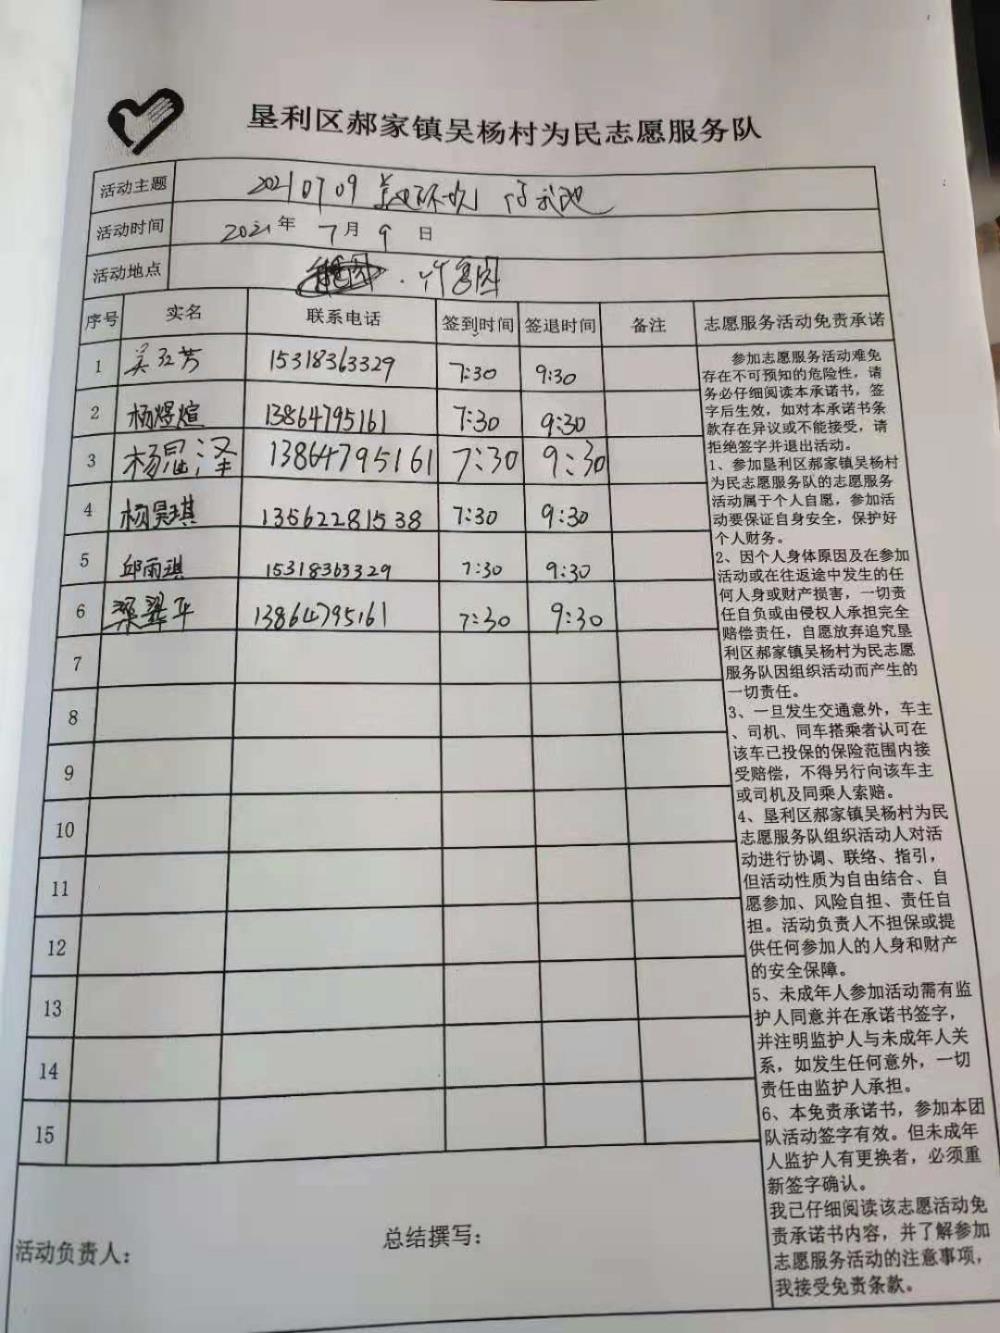 垦利区郝家镇吴杨村为民志愿服务队
活动主题 20210709 美化环境
活动时间 2021年 7月 9 日
活动地点
序号 实名 联系电话 签到时间 签退时间 备注 志愿服务活动免责承诺
1 吴红芳 15318363329 7:30 9:30
2 杨煜煊 13864795161 7:30 9:30
3 杨昆泽 13864795161 7:30 9:30
4 杨昊琪 13562281538 7:30 9:30
5 邱雨琪 15318363329 7:30 9:30
6 梁翠平 13864795161 7:30 9:30
7
8
9
10
11
12
13
14
15
参加志愿服务活动难免
存在不可预知的危险性，请
务必仔细阅读本承诺书，签
字后生效，如对本承诺书条
款存在异议或不能接受，请
拒绝签字并退出活动。
1、参加垦利区郝家镇吴杨村
为民志愿服务队的志愿服务
活动属于个人自愿，参加活
动要保证自身安全，保护好
个人财务。
2、因个人身体原因及在参加
活动或在往返途中发生的任
何人身或财产损害，一切责
任自负或由侵权人承担完全
赔偿责任，自愿放弃追究垦
利区郝家镇吴杨村为民志愿
服务队因组织活动而产生的
一切责任。
3、一旦发生交通意外，车主
、司机、同车搭乘者认可在
该车已投保的保险范围内接
受赔偿，不得另行向该车主
或司机及同乘人索赔。
4、垦利区郝家镇吴杨村为民
志愿服务队组织活动人对活
动进行协调、联络、指引，
但活动性质为自由结合、自
愿参加、风险自担、责任自
担。活动负责人不担保或提
供任何参加人的人身和财产
的安全保障。
5、未成年人参加活动需有监
护人同意并在承诺书签字，
并注明监护人与未成年人关
系，如发生任何意外，一切
责任由监护人承担。
6、本免责承诺书，参加本团
队活动签字有效。但未成年
人监护人有更换者，必须重
新签字确认。
我已仔细阅读该志愿活动免
责承诺书内容，并了解参加
志愿服务活动的注意事项，
我接受免责条款。
活动负责人： 总结撰写：